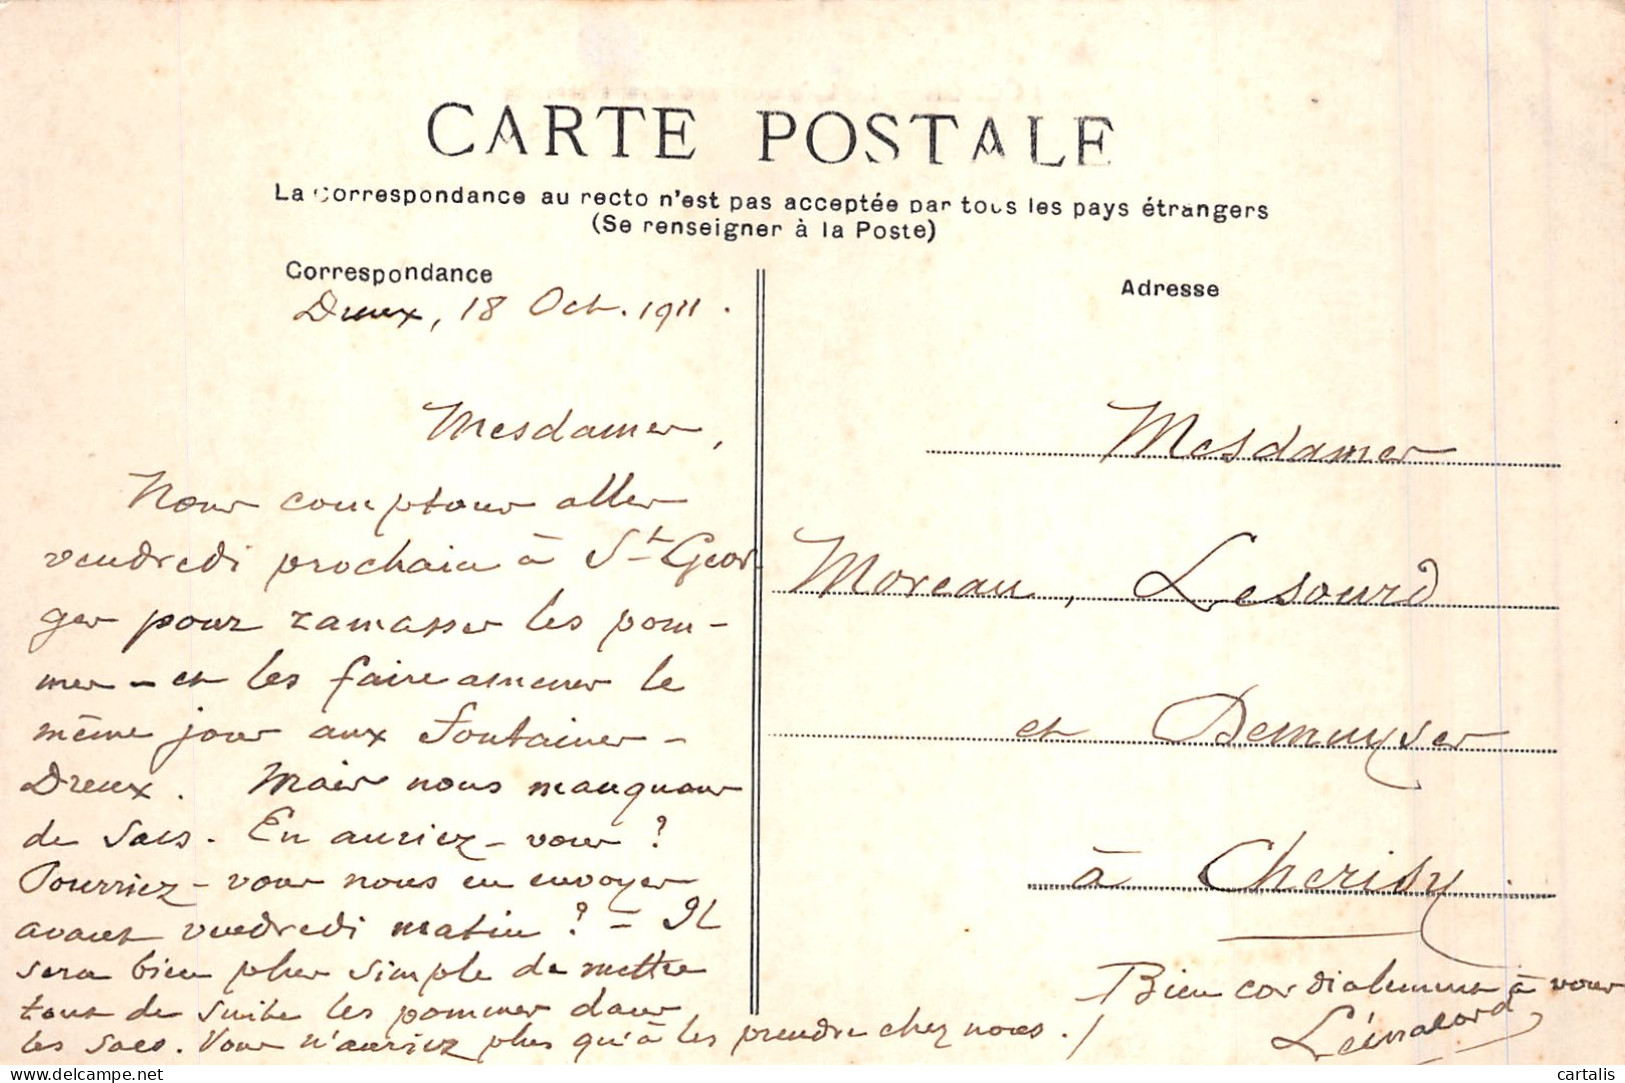 CARTE POSTALE
La correspondance au recto n'est pas acceptée par tous les pays étrangers
(Se renseigner à la Poste)
Correspondance
Adresse
Dreux, 18 Oct. 1911.
Mesdames,
Nous comptons aller
vendredi prochain à St Geor
ges pour ramasser les pom-
mes - et les faire amener le
même jour aux Fontaines -
Dreux. Mais nous manquons
de sacs. En auriez-vous ?
Pourriez-vous nous en envoyer
avant vendredi matin ? - Il
sera bien plus simple de mettre
tout de suite les pommes dans
les sacs. Vous n'auriez plus qu'à les prendre chez nous. /
Mesdames
Moreau, Lesourd
et Demuyser
à Cherisy
Bien cordialement à vous
cartalis
delcampe.net